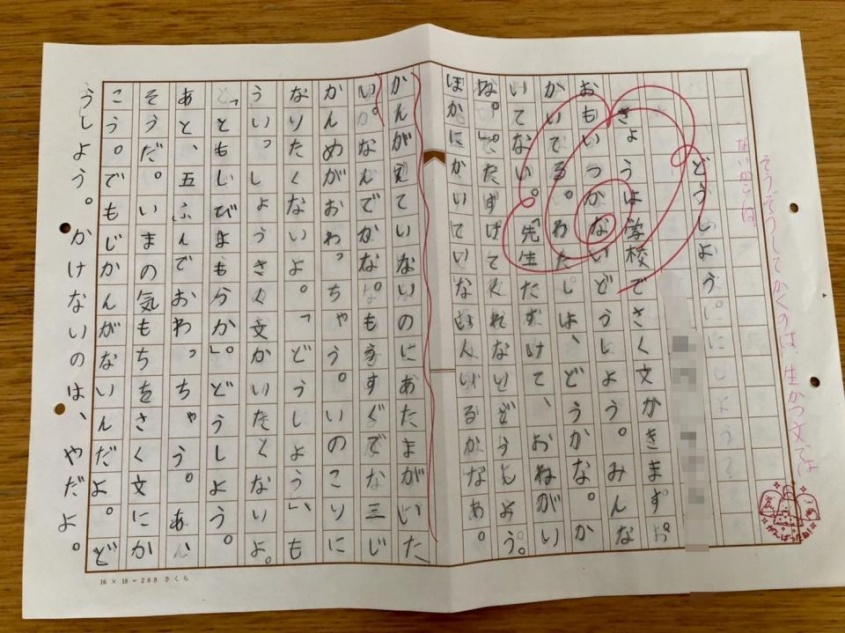 そうぞうしてかくのは、生かつ文では
どうしよう
きょうは学校でさく文がきます。
おもいつかないどうしよう。みんな
かいてる。わたしは、どうかな。か
いてない。「先生たすけて、おねがい
な。」たすけてくれないどうしよう。
ほかにかいていない いるかなあ。
かんがえていないのにあたまがいた
い。なんでかな。もうすぐで 三じ
かんめがおわっちゃう。いのこりに
なりたくないよ。「どうしよう」も
ういっしょうさく文かいたくないよ。
どうしよう。
あと、五ふんでおわっちゃう。あ、
そうだ。いまの気もちをさく文にか
こう。でもじかんがないんだよ。ど
うしよう。かけないのは、やだよ。
16×18=288 さくら